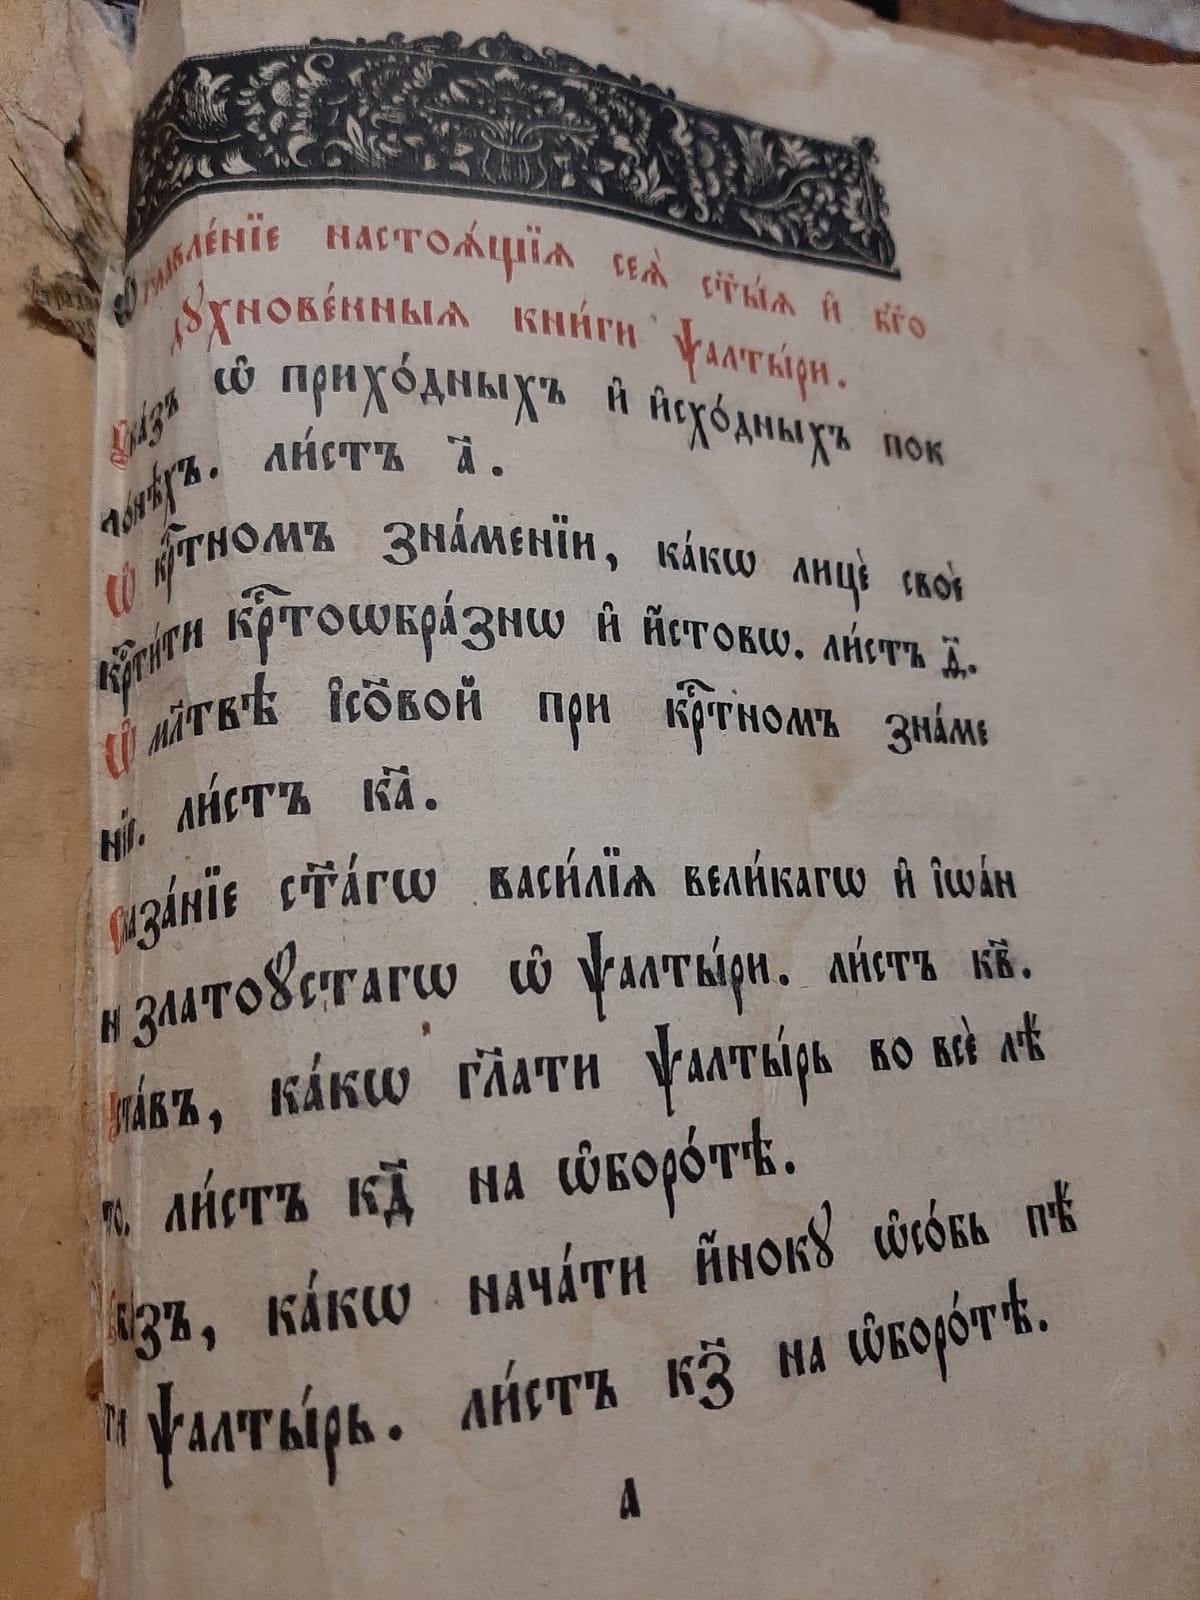 Ѡ҆главле́нїе настоѧ́щїѧ сеѧ̀ ст҃ы́ѧ и҆ бг҃о
дꙋхнове́нныѧ кни́ги ѱалты́ри.
Оу҆ка́зъ ѡ҆ прихо́дныхъ и҆ и҆схо́дныхъ пок
ло́нѣхъ. ли́стъ а҃.
Ѡ҆ крⷭ҇тномъ зна́менїи, ка́кѡ лицѐ своѐ
крⷭ҇ти́ти крⷭ҇тоѡбра́знѡ и҆ и҆́стовѡ. ли́стъ д҃.
Ѡ҆ мл҃твѣ і҆сⷭ҇овой при крⷭ҇тномъ зна́ме
нїи. ли́стъ ка҃.
Сказа́нїе ст҃а́гѡ васи́лїѧ вели́кагѡ и҆ і҆ѡа́н
н златоꙋстагѡ ѡ҆ ѱалты́ри. ли́стъ кв҃.
Оу҆ста́въ, ка́кѡ гл҃ати ѱалты́рь во всѐ лѣ́
то. ли́стъ кд҃ на ѡ҆боро́тѣ.
Оу҆ка́зъ, ка́кѡ нача́ти и҆́нокꙋ ѡ҆со́бь пѣ́
ти ѱалты́рь. ли́стъ кз҃ на ѡ҆боро́тѣ.
а